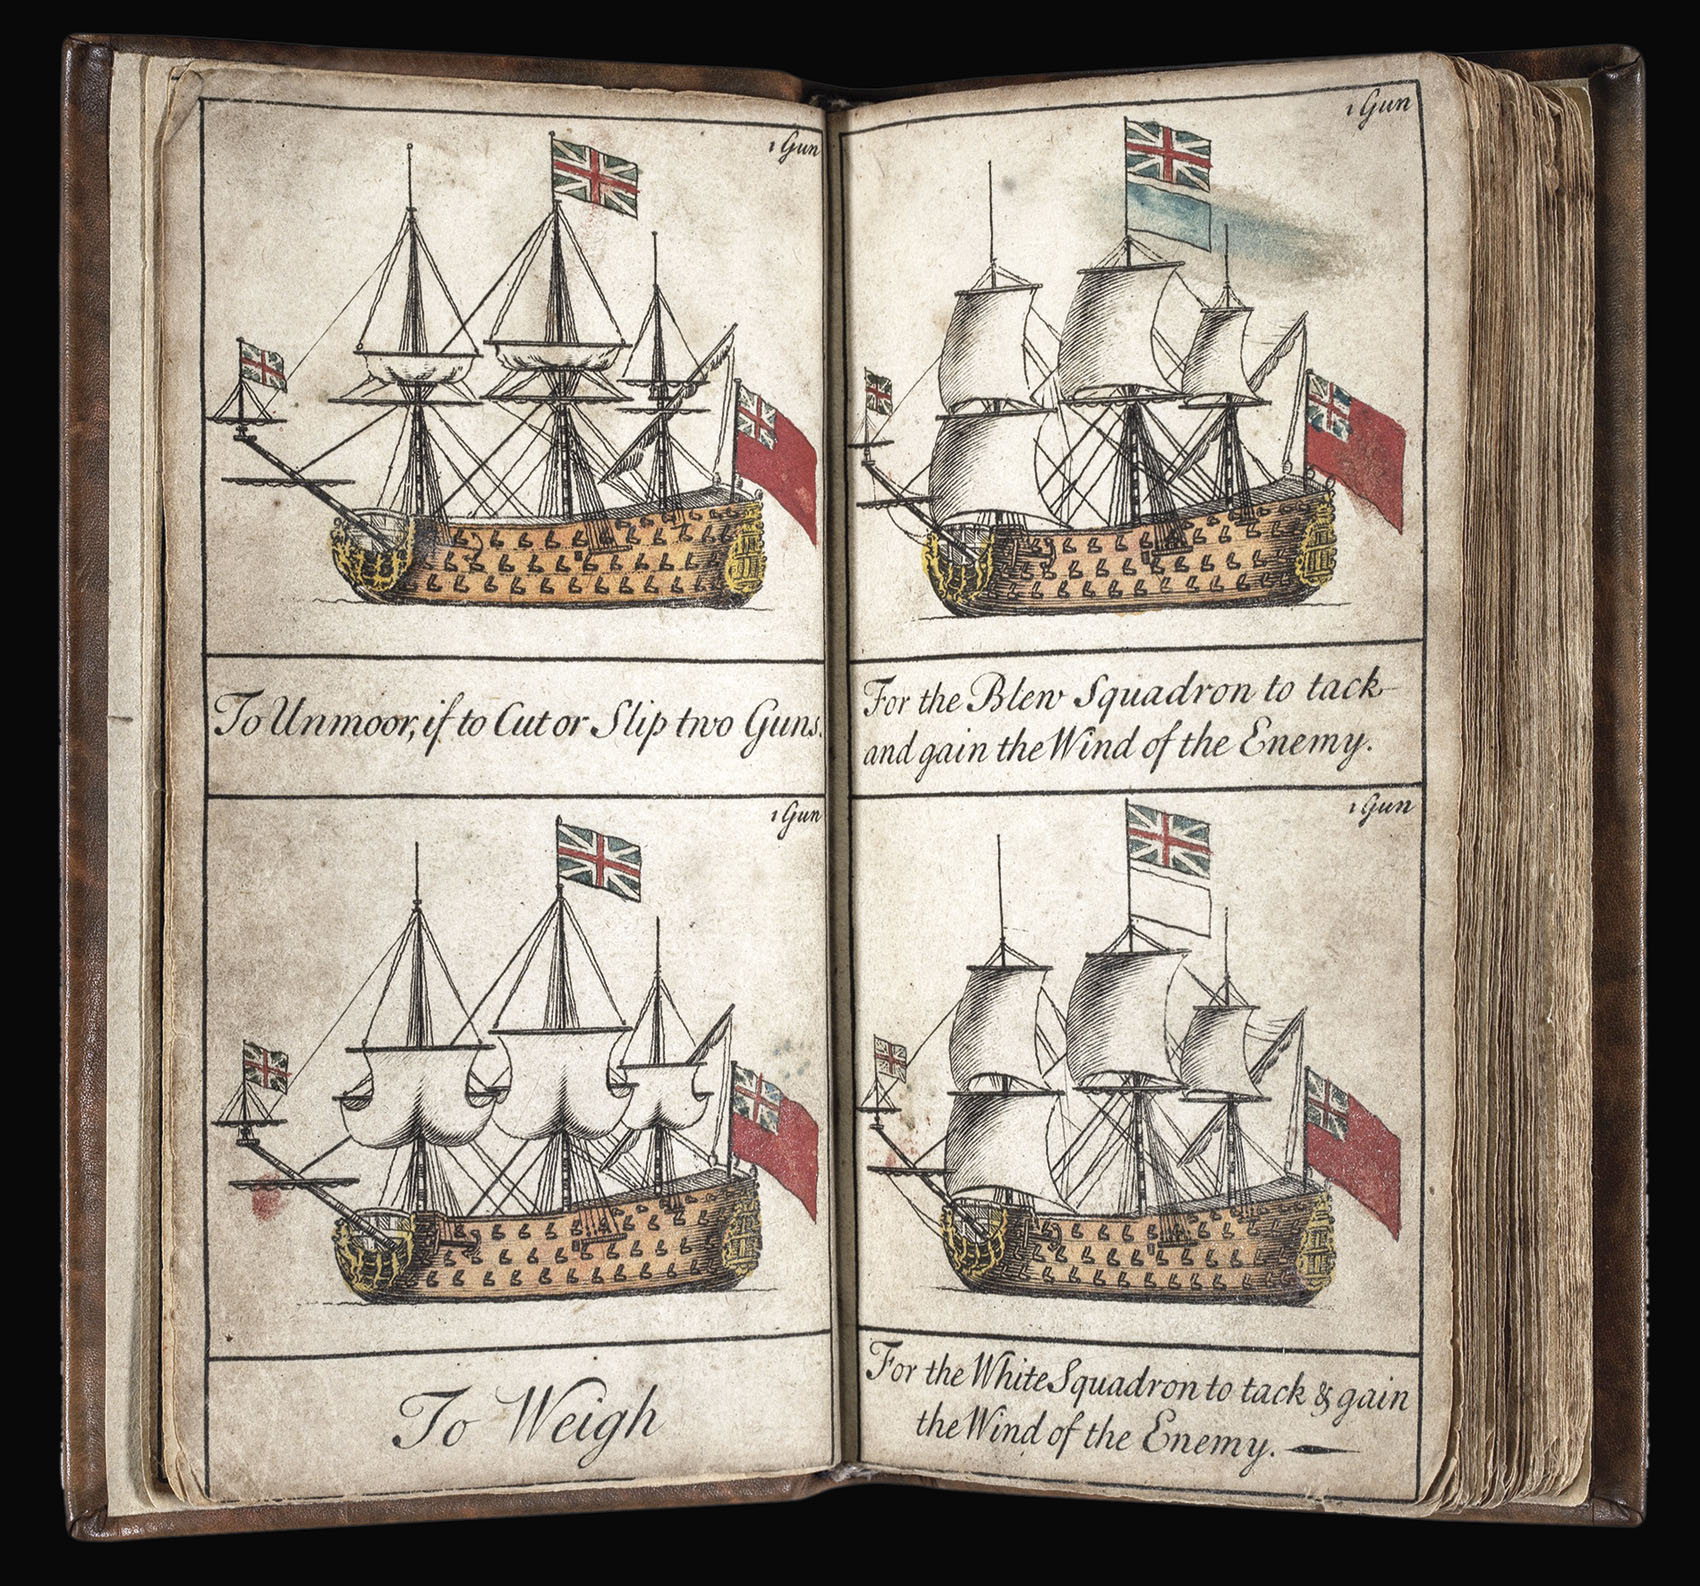 1 Gun
To Unmoor, if to Cut or Slip two Guns.
1 Gun
To Weigh
1 Gun
For the Blew Squadron to tack
and gain the Wind of the Enemy.
1 Gun
For the White Squadron to tack & gain
the Wind of the Enemy.